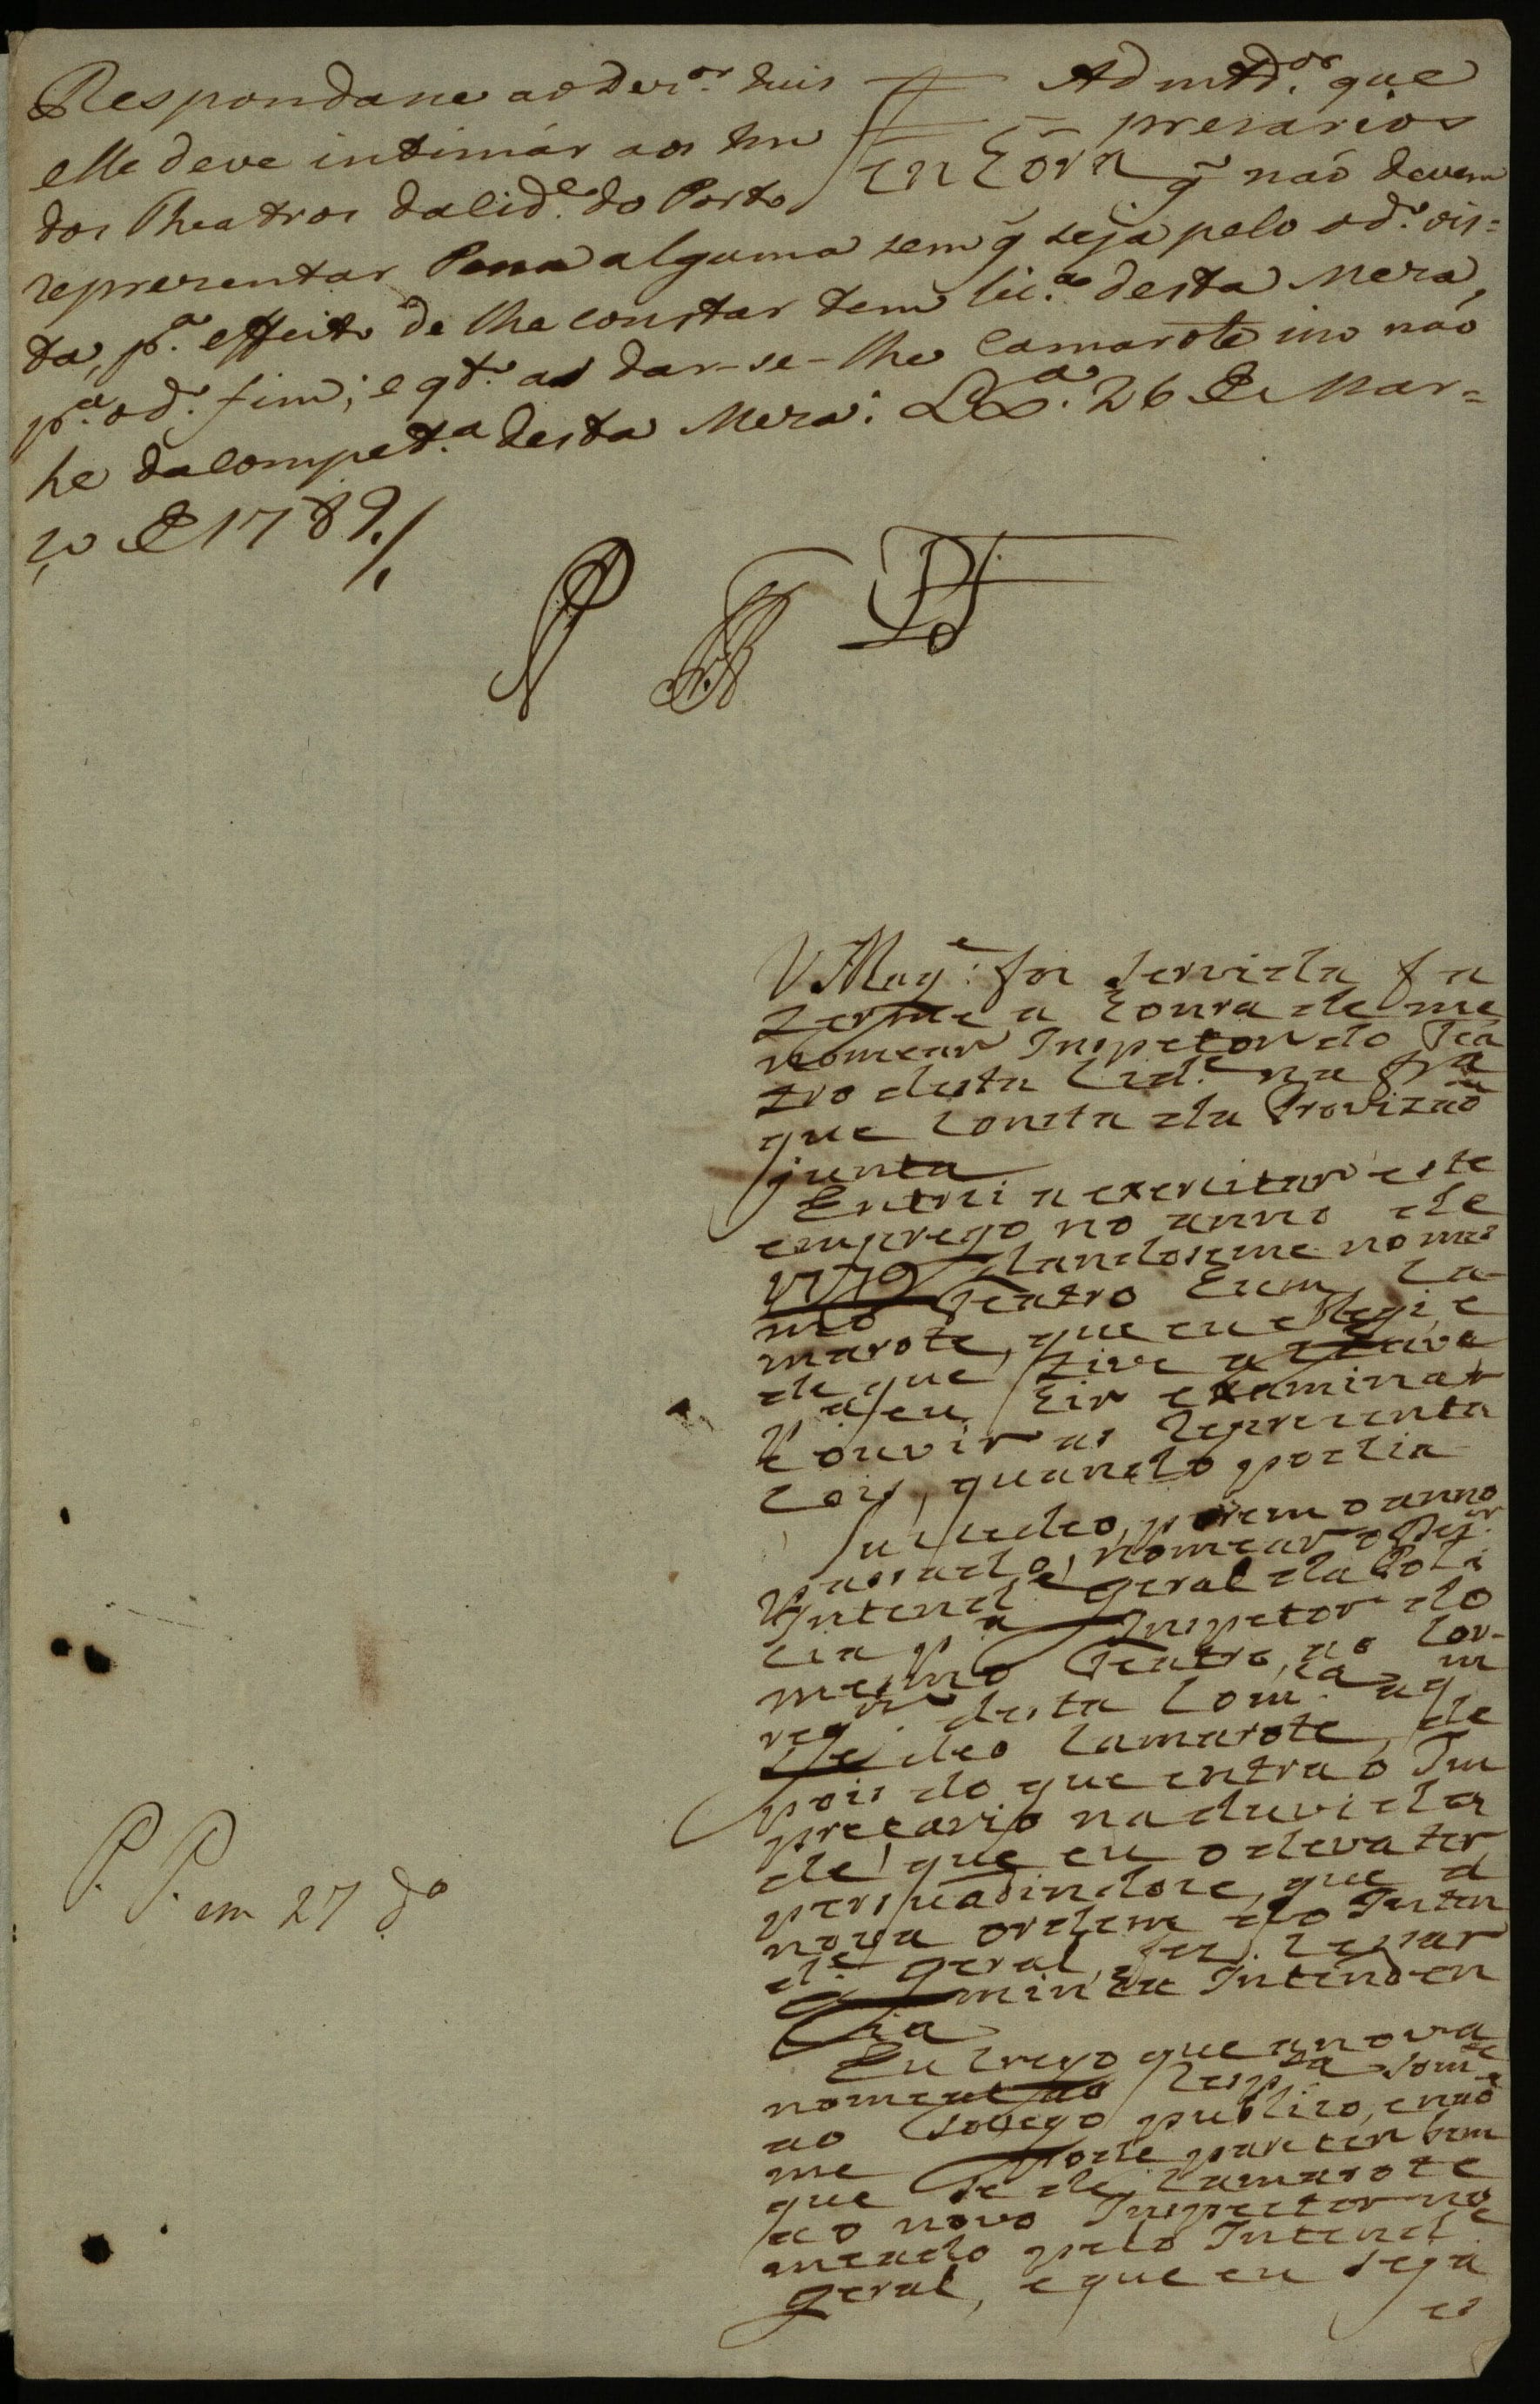 Respondase ao Dez.or Luis Admtd.or que
elle deve intimár aos Im presarios
Senhora
dos Theatros da Cid.e do Porto q̃ naõ devem
reprezentar Pessa alguma sem q̃ seja pelo od.o vis=
ta, p.a effeito de lhe constar tem lic.ça desta Meza,
p.a od.o fim; e q.to ao dar-se-lhe Camarote iso naõ
he da Compet.a desta Meza. Lx.a 26 de Mar=
ço de 1789./.
V. Mag.e foi servida fa
zerme a honra de me
nomear Inspetor do Tea
tro desta Cid.e na fr.a
que consta da Provizaõ
junta
Entrei a exercitar este
emprego no anno de
1779 dandoseme no mes
mo Teatro hum Ca-
marote, que eu ellegi, e
de que tive a chave
p.a eu hir examinar
e ouvir as Reprezenta
cois, quando podia
Sucedeo, porem o anno
passado, nomear o Dez.or
Intend.e geral da Poli
cia p.a Inspetor do
mesmo Teatro, ao Cor-
reg.or desta Com.ca aq.m
se deo Camarote, de
pois do que entra o Im
precario na duvida
de que eu o deva ter,
persuadindose, que a
nova ordem do Inten
d.e geral, fez cessar
a minha Intenden
cia
Eu creyo que a nova
nomeaçaõ resp.ta som.te
ao socego publico, e naõ
me pode parecer bem
que se de Camarote
ao novo Inspector no
meado pelo Intend.e
geral, e que eu seja
es
P. P. em 27 d.o